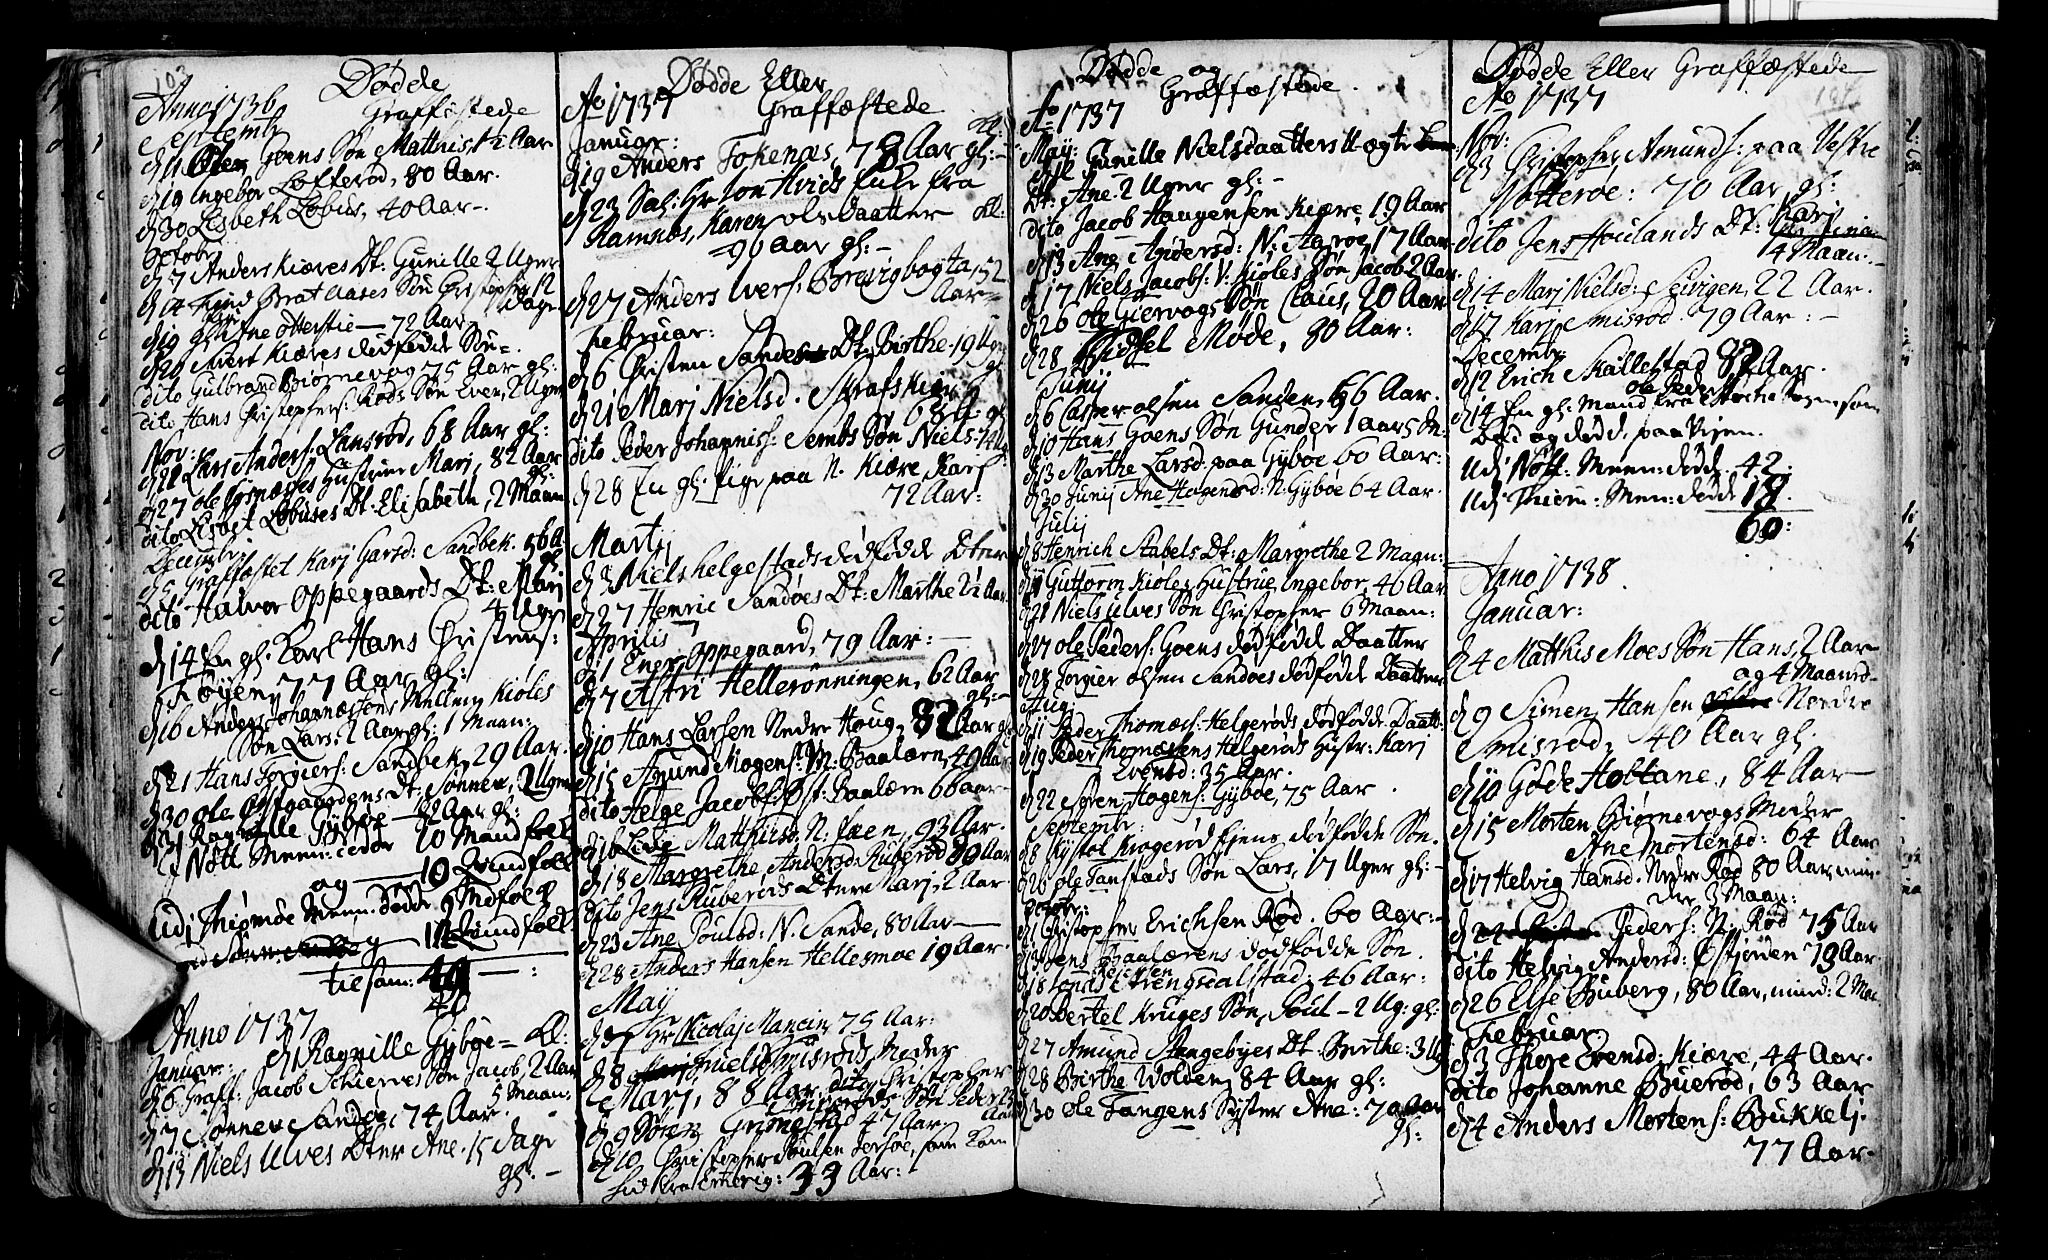 103
Dødde
Anno 1736
Graffæstede
Septemb:
d 11 Goens Søn Matthis, 1½ Aar
d 19 Ingebor Lofterød, 80 Aar.
d 30 Lisbeth Løbus, 40 Aar-.
Octobr
d 7 Anders Kiæres Dt: Gunille 2 Uger
d 14 Brat Aases Søn Christopher 12 Dage
d 19 Ane Otterstie — 72 Aar
d 20 Sivert Kiæres dødfødde Søn-.
dito Gulbrand Biørnevog 75 Aar gl:
dito Hans Christophers: Røds Søn Even, 2 Uger
Nov:
d 22 Lars Anders: Lansrød, 68 Aar gl:
d 27 Ole Hustrue Marj, 82 Aar gl:
dito Lisbet Løbuses Dt: Elisabeth, 2 Maan
Decembr
d 5 Graffæstet Karj Garsd: Sandbek. 56 A.
dito Halvor Oppegaards Dt: Marj 4 Uger
d 14 En gl. Karl Hans Christens:
Føyen, 77 Aar gl:
d 16 Anders Johannessøns Mellem Kiøles
Søn Lars, 2 Aar gl: 1 Maan:
d 21 Hans Torgiers: Sandbek, 29 Aar.
d 30 Ole Østgaardens Dt: Sønnev, 2 Uger
d 31 Ragnille Gybøe — 82 Aar gl:
Nøtt. Meen: dødde 20 Mandfolk
og — 10 Qvindfolk
Udj Thiømøe Meen. dødde 9 Mdfolk
11 Qvindfolk
tilsam: 40 — :
40
Anno 1737
Januar: d 1 Ragnille Gybøe = Kl:
d 6 Graff: Jacob Schierves Søn Jacob, 2 Aar
5 Maan:
d 7 Sønnev Sandøe, 74 Aar.
d 13 Niels Ulves Dtter Ane. 15 Dage
gl: -
Dødde Eller
Ao 1737
Graffæstede
Januar:
d 19 Anders Fokenæs, 78 Aar gl: -
d 23 Sal: Hr Ion Hvids Enke fra
Ramnes, Karen Olsdaatter Kl:
90 Aar gl: -
d 27 Anders Ivers: Brevigbogta, 52
Aar-
Februar:
d 6 Christen Sandes Dt: Birthe. 19 Uger
d 21 Marj Nielsd. Skrafskier
68 A: gl
dito Peder Johannis: Sembs Søn Niels:
d 28 En gl. Pige paa N. Kiære Karj
72 Aar:
Martj
d 3 Niels Helgestads dødfødde Dtter
d 27 Henric Sandøes Dt: Marthe 2½ Aar
Aprilis
d 1 Ener Oppegaard, 79 Aar: —
d 7 Astri Hellerønningen, 62 Aar
gl: -
d 10 Hans Larsen Nedre Houg, 82 Aar gl
d 15 Amund Mogens: M: Baalærn, 49 Aar
dito Helge Jacobs: Øst: Baalærn 66 Aar
d 16 Lide Matthisd: N: Fæen, 93 Aar.
d 18 Margrethe Andersd: Ruberød 80 Aar
dito Jens Ruberøds Dtter Marj, 2 Aar
d 23 Ane Poulsd: N. Sande, 80 Aar —
d 28 Anders Hansen Hellesmoe 19 Aar.
May
d 7 Hr Nicolaj Mancin 75 Aar:
d 8 Niels Smisrøds Moder
Marj, 88 Aar dito Christopher
Søn Peder 23
Aar
d 9 Søren Grimestad 47 Aar
d 10 Christopher Poulsen Torsøe, som kom
hid fra : 33 Aar:
Dødde og
Graffæstede.
Ao 1737
May:
d 12 Gunille Nielsdaatters Uægte
Dt: Ane. 2 Uger gl: -
dito Jacob Haagensen Kiære, 19 Aar
d 13 Ane Andersd: N: Aarøe, 17 Aar
d 17 Niels Jacobs: V: Kiøles Søn Jacob 2 Aar
d 26 Ole Giervogs Søn Claus, 20 Aar
d 28 Sidsel Møde, 80 Aar:
Junij
d 6 Casper Olsen Sanden, 56 Aar.
d 10 Hans Goens Søn Gunder 1 Aar 5 M:
d 13 Marthe Larsd: paa Gybøe 60 Aar:
d 30 Junij Ane Hagensd: N: Gybøe 64 Aar.
Julij
d 8 Henrich Stabels Dt: Margrethe 2 Maan:
d 11 Guttorm Kiøles Hustrue, Ingebor, 40 Aar
d 21 Niels Ulves Søn Christopher 6 Maan:
d 27 Ole Peders: Goens dødfødde Daatter
d 28 Torgier Olsen Sandøes dødfødde Daatter
Aug:
d 11 Peder Thomæs: Helgerøds dødfødde Daatt:
d 19 Peder Thomæsens Helgerøds Hustr: Karj
Evensd: 35 Aar.
d 22 Søren Hagens: Gybøe, 75 Aar .
Septembr:
d 8 Kystol Krogerød Eiens dødfødde Søn.
d 26 Ole Tanstads Søn Lars, 17 Uger gl: -
Octobr:
d 1 Christopher Erichsen Rød. 60 Aar: -
d 13 Jens Baalærens dødfødde Søn.
d 18 Jonas Trengsdalstad: 46 Aar:
d 20 Bertel Kruges Søn, Poul - 2 Ug: gl:
d 27 Amund Stangebyes Dt. Berthe: 3 Ug
d 28 Birthe Wolden, 84 Aar gl:
d 30 Ole Tangens Syster Ane: 70 Aar
gl:
Dødde Eller Graffæstede
104
Ao 1737
Nov:
d 3 Christopher Amunds: paa Vestre
Nøtterøe: 70 Aar gl:
dito Jens Houlands Dt: Karj
14 Maan: -
d 14 Marj Nielsd: Sevigen, 22 Aar.
d 17 Karj Smisrød. 79 Aar: -
Decembr
d 12 Erich Skallestad 82 Aar.
Ole Peders:
d 14 En gl: Mand fra Stocke Sogn som
bad og døde paa Veyen.
Udj Nøtt: Meen: dødde 42.
Udj Thiøm: Men: dødde 18.
60:
Anno 1738.
Januar:
d 4 Matthis Moes Søn Hans, 2 Aar
og 4 Maaned-
d 9 Simen Hansen Nordre
Smisrød, 40 Aar gl.
d 10 Gøde Holtane, 84 Aar —
d 15 Morten Biørnevogs Moder
Ane Mortensd: 64 Aar
d 17 Helvig Hansd. Nedre Rød 80 Aar, min-
dre 3 Maan:
d 22 Peders: N: Rød 75 Aar
dito Helvig Andersd: Østjøuen 19 Aar.
d 26 Else Buberg, 80 Aar, mind: 2 Maa
Februar
d 3 Thore Evensd: Kiære, 44 Aar.
dito Johanne Buerød, 63 Aar
d 4 Anders Mortens: Bukkelj.
77 Aar.